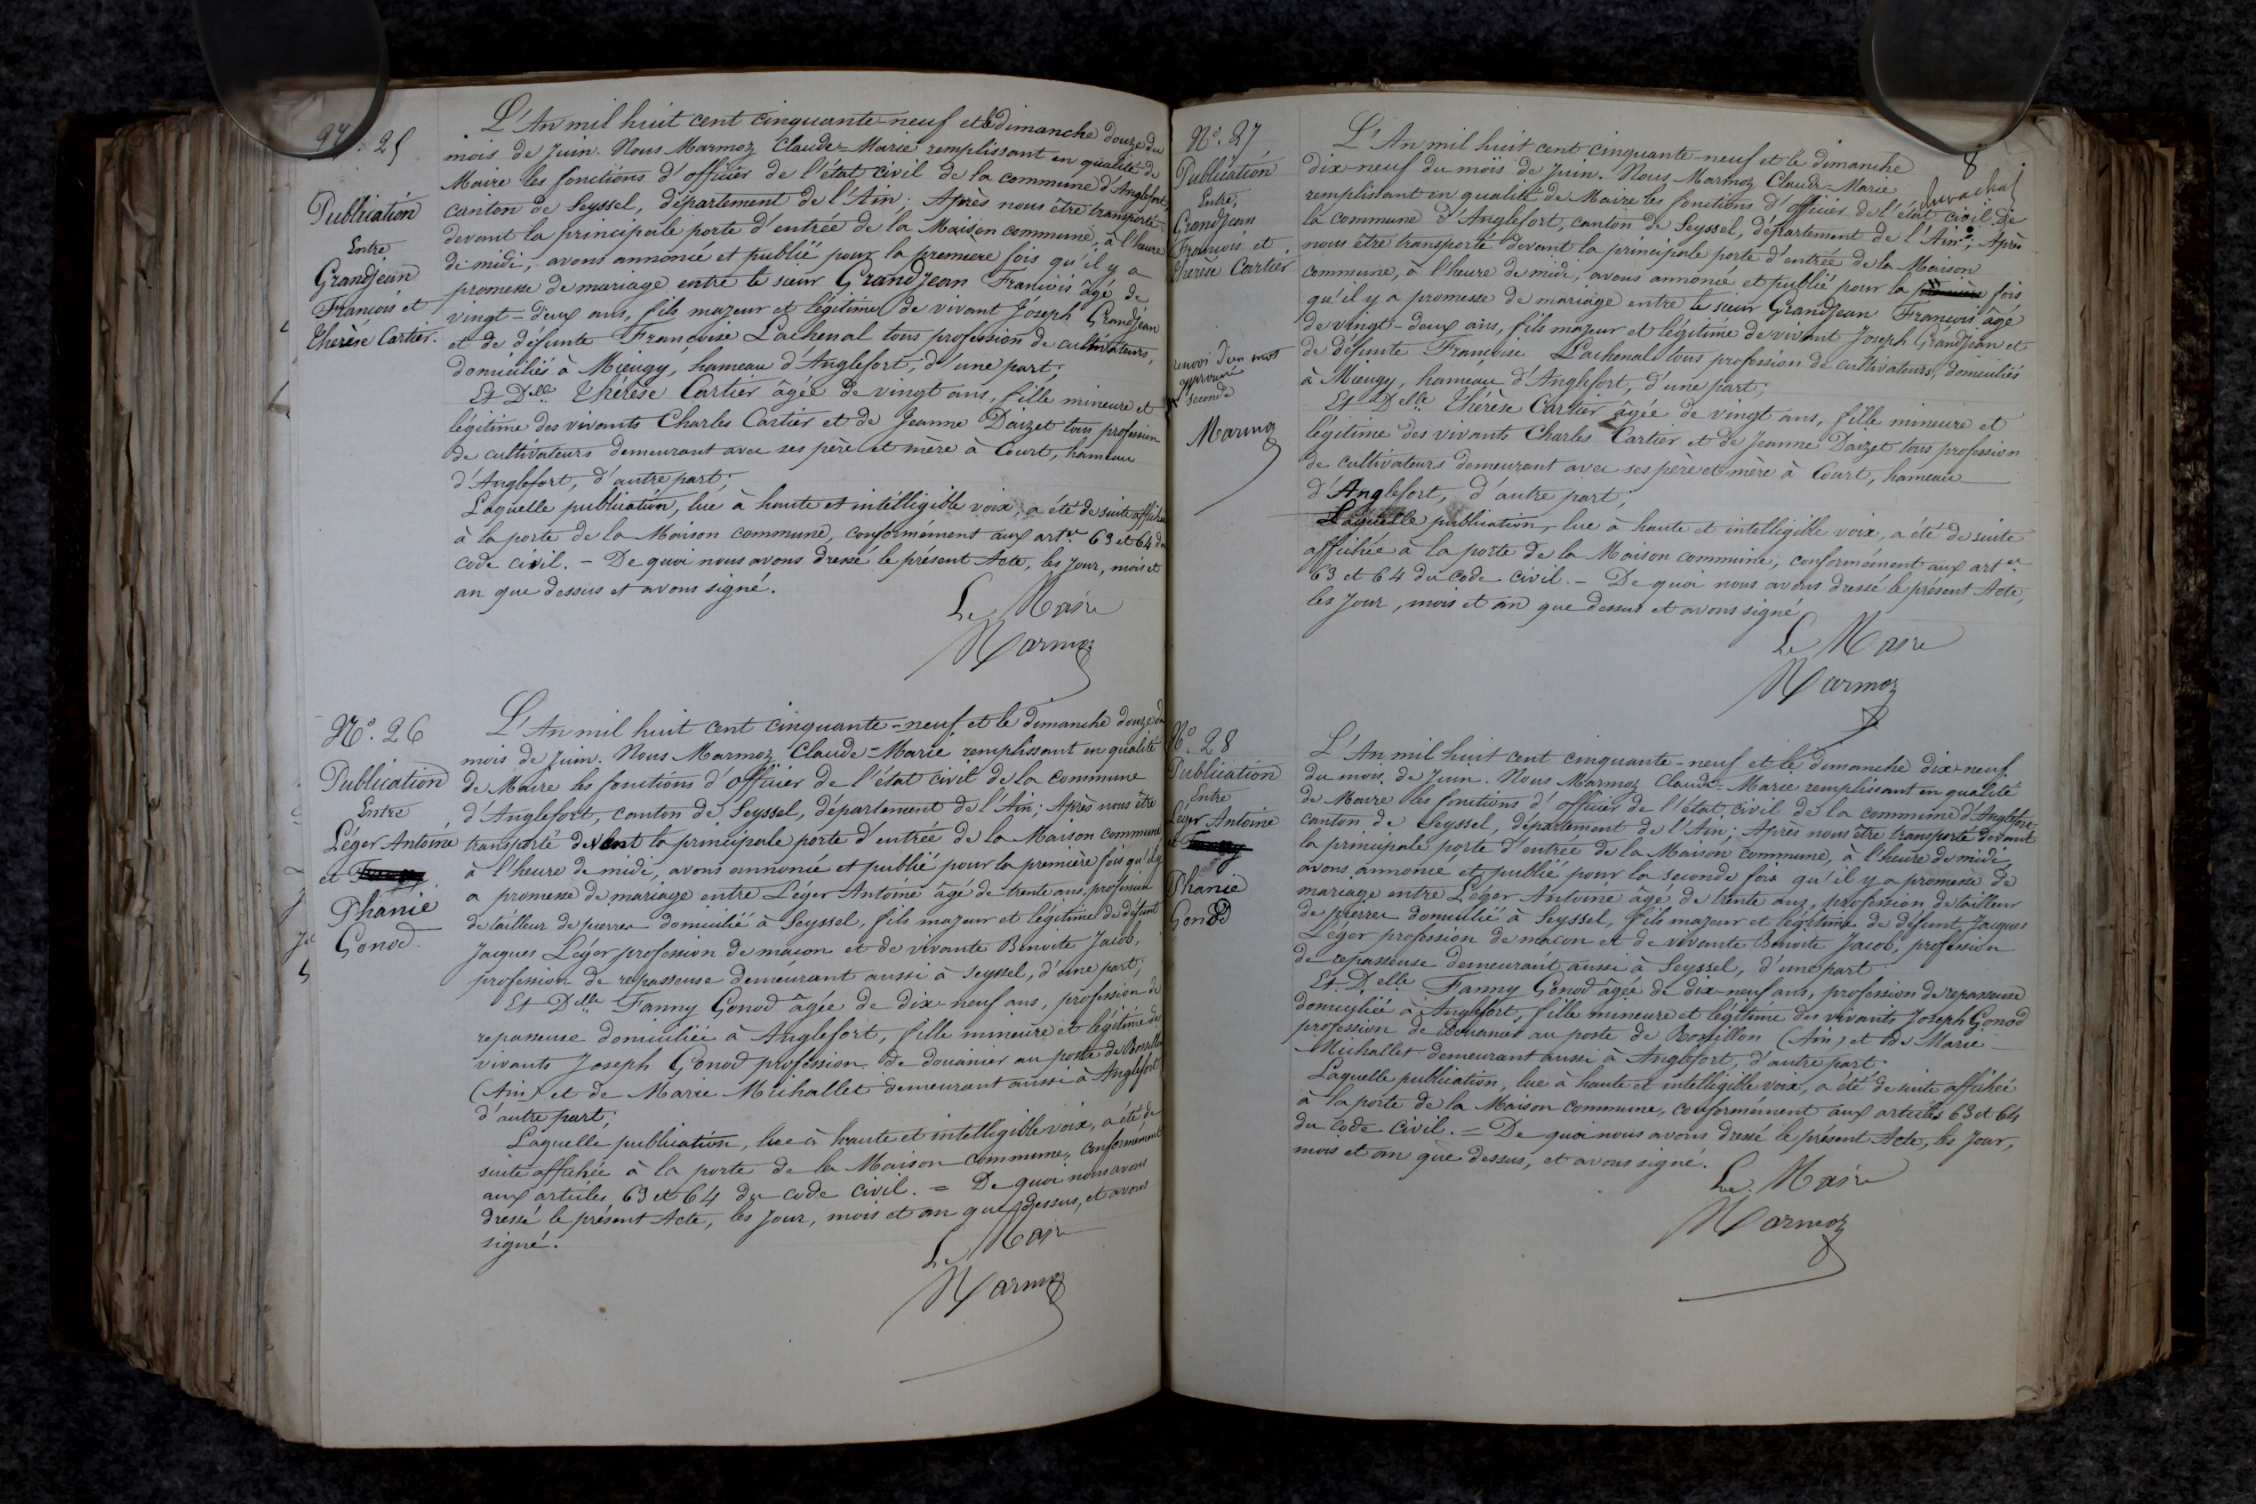 Nº. 25
Publication
Entre
Grandjean
François et
Thérèse Cartier.
L'An mil huit cent cinquante-neuf et le dimanche douze du
mois de Juin. Nous Marmoz Claude-Marie remplissant en qualité de
Maire les fonctions d'officier de l'état civil de la commune d'Anglefort,
canton de Seyssel, département de l'Ain; Après nous être transporté
devant la principale porte d'entrée de la Maison commune, à l'heure
de midi, avons annoncé et publié pour la première fois qu'il y a
promesse de mariage entre le sieur Grandjean François âgé de
vingt-deux ans, fils majeur et légitime de vivant Joseph Grandjean
et de défunte Françoise Lachenal tous profession de cultivateurs,
domiciliés à Mieugy, hameau d'Anglefort, d'une part;
Et Delle Thérèse Cartier âgée de vingt ans, fille mineure et
légitime des vivants Charles Cartier et de Jeanne Daizet tous profession
de cultivateurs demeurant avec ses père et mère à Court, hameau
d'Anglefort, d'autre part;
Laquelle publication, lue à haute et intelligible voix, a été de suite affichée
à la porte de la Maison commune, conformément aux artes 63 et 64 du
code civil. - De quoi nous avons dressé le présent Acte, les Jour, mois et
an que dessus et avons signé.
Le Maire
Marmoz
Nº. 26
Publication
Entre
Léger Antoine
et
Phanie
Gonod.
L'An mil huit cent cinquante-neuf et le dimanche douze du
mois de Juin. Nous Marmoz Claude-Marie remplissant en qualité
de Maire les fonctions d'officier de l'état civil de la commune
d'Anglefort, canton de Seyssel, département de l'Ain; Après nous être
transporté devant la principale porte d'entrée de la Maison commune
à l'heure de midi, avons annoncé et publié pour la première fois qu'il y
a promesse de mariage entre Léger Antoine âgé de trente ans, profession
de tailleur de pierres domicilié à Seyssel, fils majeur et légitime de défunt
Jacques Léger profession de maçon et de vivante Benoite Jacob,
profession de repasseuse demeurant aussi à Seyssel, d'une part;
Et Delle Fanny Gonod âgée de dix-neuf ans, profession de
repasseuse domiciliée à Anglefort, fille mineure et légitime des
vivants Joseph Gonod profession de douanier au poste de Rossillon
(Ain) et de Marie Michallet demeurant aussi à Anglefort
d'autre part;
Laquelle publication, lue à haute et intelligible voix, a été de
suite affichée à la porte de la Maison commune, conformément
aux articles 63 et 64 du code civil. = De quoi nous avons
dressé le présent Acte, les Jour, mois et an que dessus, et avons
signé.
Le Maire
Marmoz
8
Nº. 27
Publication
Entre,
Grandjean
François et
Thérèse Cartier
renvoi d'un mot
approuvé
seconde
Marmoz
L'An mil huit cent cinquante-neuf et le dimanche
dix-neuf du mois de Juin. Nous Marmoz Claude-Marie
remplissant en qualité de Maire les fonctions d'officier de l'état civil de
la commune d'Anglefort, canton de Seyssel, département de l'Ain; Après
nous être transporté devant la principale porte d'entrée de la Maison
commune, à l'heure de midi, avons annoncé et publié pour la première fois
qu'il y a promesse de mariage entre le sieur Grandjean François âgé
de vingt-deux ans, fils majeur et légitime de vivant Joseph Grandjean et
de défunte Françoise Lachenal tous profession de cultivateurs, domiciliés
à Mieugy, hameau d'Anglefort, d'une part;
Et Delle Thérèse Cartier âgée de vingt ans, fille mineure et
légitime des vivants Charles Cartier et de Jeanne Daizet tous profession
de cultivateurs demeurant avec ses père et mère à Court, hameau
d'Anglefort, d'autre part;
Laquelle publication, lue à haute et intelligible voix, a été de suite
affichée à la porte de la Maison commune, conformément aux artes
63 et 64 du code civil. - De quoi nous avons dressé le présent Acte,
les Jour, mois et an que dessus et avons signé
Le Maire
Marmoz
Nº. 28
Publication
Entre
Léger Antoine
et
Phanie
Gonod
L'An mil huit cent cinquante-neuf et le dimanche dix-neuf
du mois de Juin. Nous Marmoz Claude-Marie remplissant en qualité
de Maire les fonctions d'officier de l'état civil de la commune d'Anglefort
canton de Seyssel, département de l'Ain; Après nous être transporté devant
la principale porte d'entrée de la Maison commune, à l'heure de midi,
avons annoncé et publié pour la seconde fois qu'il y a promesse de
mariage entre Léger Antoine âgé de trente ans, profession de tailleur
de pierres domicilié à Seyssel, fils majeur et légitime de défunt Jacques
Léger profession de maçon et de vivante Benoite Jacob, profession
de repasseuse demeurant aussi à Seyssel, d'une part
Et Delle Fanny Gonod âgée de dix-neuf ans, profession de repasseuse
domiciliée à Anglefort, fille mineure et légitime des vivants Joseph Gonod
profession de Douanier au poste de Rossillon (Ain) et de Marie
Michallet demeurant aussi à Anglefort, d'autre part.
Laquelle publication, lue à haute et intelligible voix, a été de suite affichée
à la porte de la Maison commune, conformément aux articles 63 et 64
du code civil. = De quoi nous avons dressé le présent Acte, les Jour,
mois et an que dessus, et avons signé.
Le Maire
Marmoz